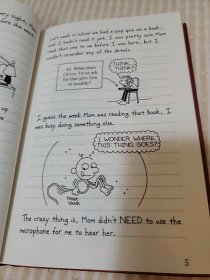 ery night, Mom
efore she went
up
Last week in school we had a pop quiz on a book,
and I hadn't read it yet. I was pretty sure Mom
read that one to me before I was born, but I
couldn't remember any of the details.
THINK,
THINK!
I guess the week Mom was reading that book, I
was busy doing something else.
I WONDER WHERE
THIS THING GOES?
YANK
YANK
The crazy thing is, Mom didn't NEED to use the
microphone for me to hear her.
5